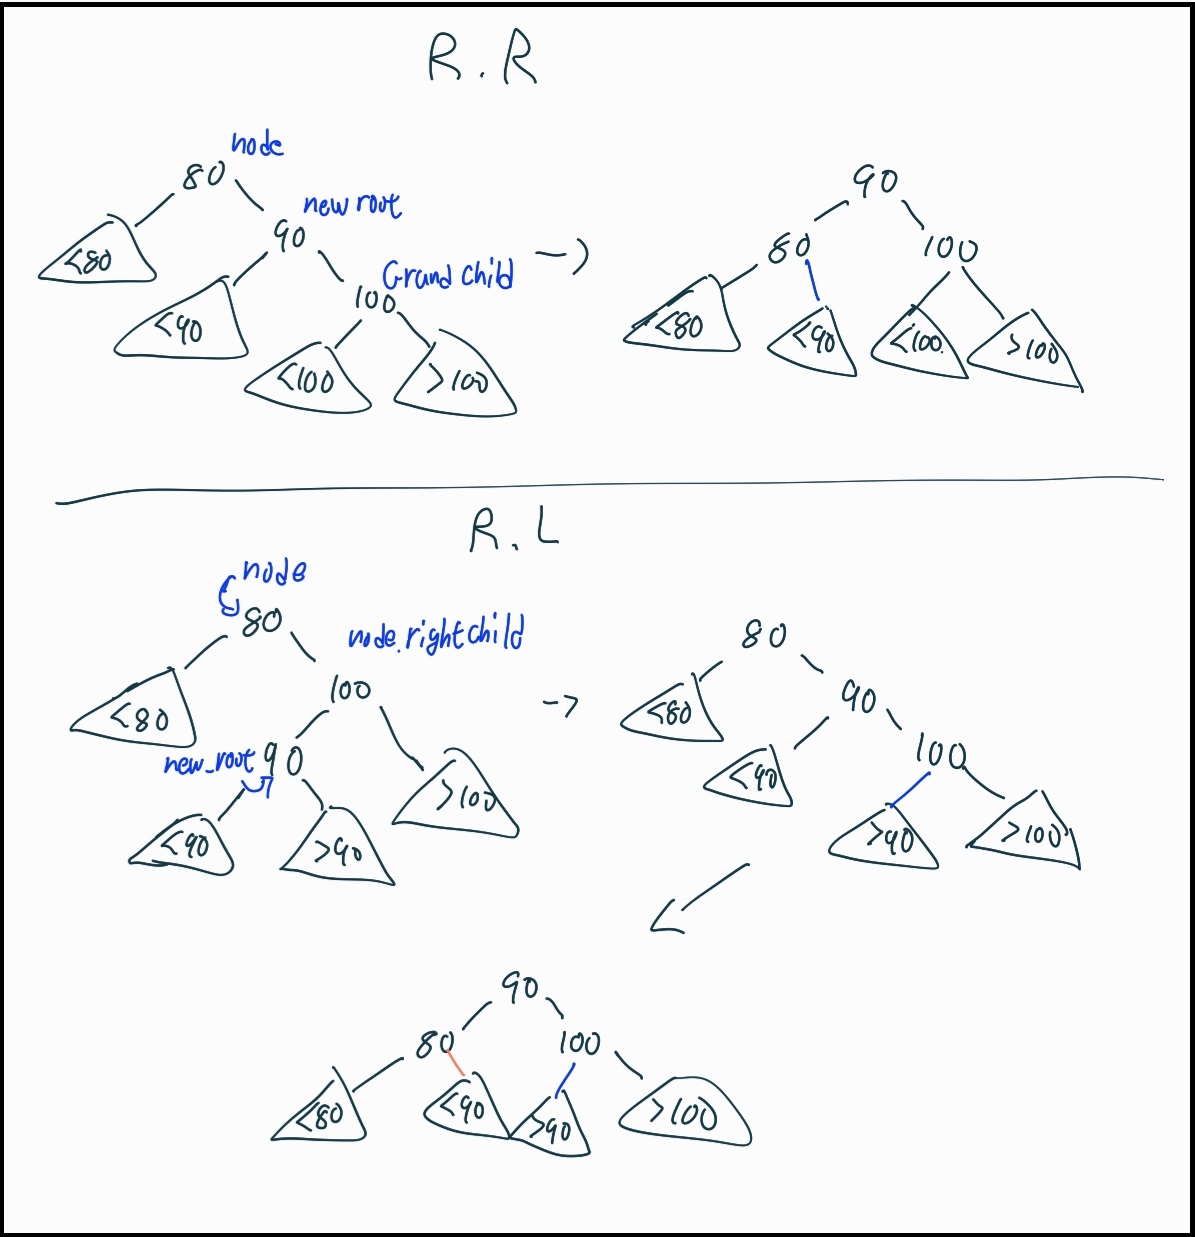 R.R
node
80
new root
90
<80
Grand child
100
<90
<100
>100
->
90
80
100
<80
<90
<100.
>100
R.L
node
80
node.rightchild
100
<80
new_root 90
>100
<90
>90
->
80
<80
90
<90
100
>90
>100
90
80
100
<80
<90
>90
>100